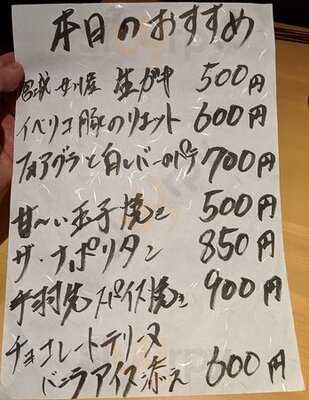 本日のおすすめ
宮城 女川産 生ガキ 500円
イベリコ豚のリエット 600円
フォアグラと白レバーのパテ 700円
甘〜い玉子焼き 500円
ザ・ナポリタン 850円
手羽先スパイス焼き 900円
チョコレートテリーヌ
バニラアイス添え 600円